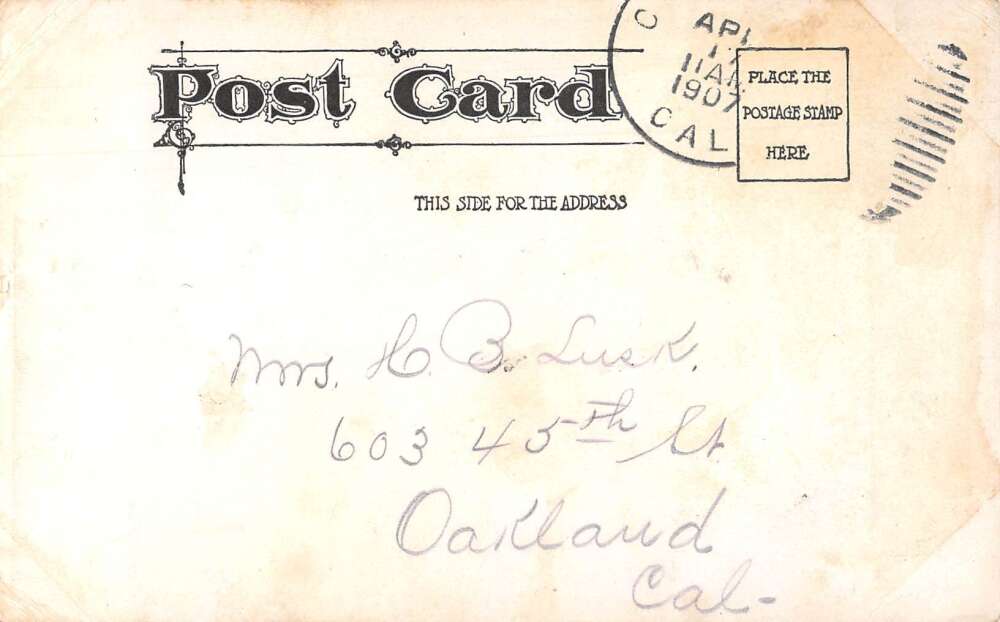 Post Card
THIS SIDE FOR THE ADDRESS
11AM
1907
CAL
PLACE THE
POSTAGE STAMP
HERE
Mrs. H. B. Lusk.
603 45th St
Oakland
Cal-